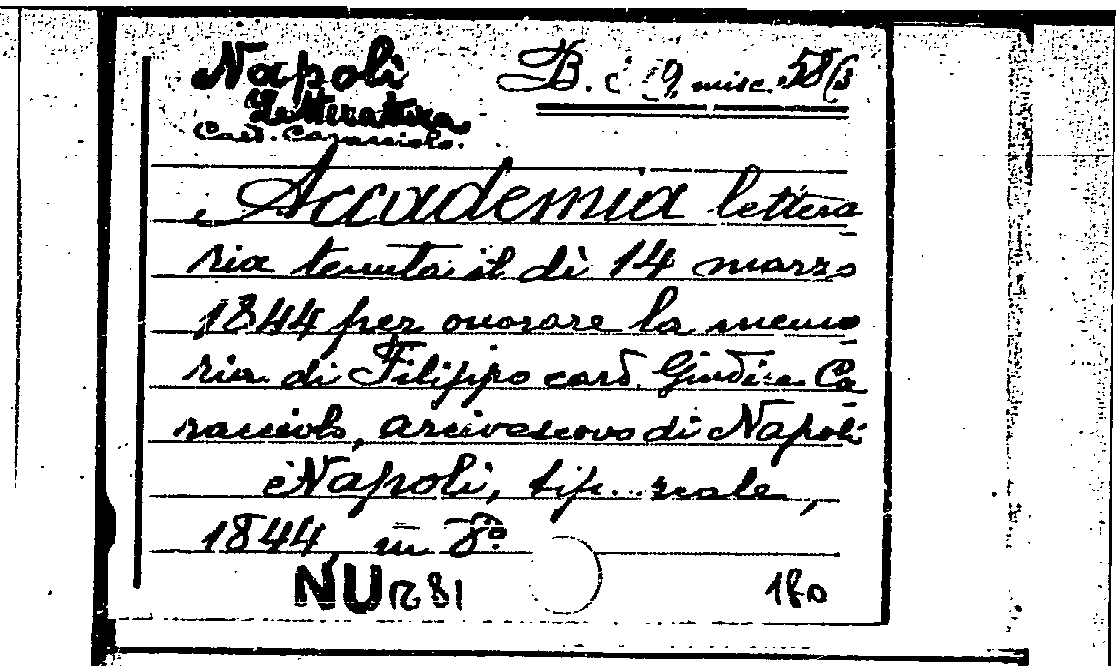 Napoli
B. c 19 misc. 58/3
Letteratura
Card. Caracciolo.
Accademia lettera
ria tenuta il dì 14 marzo
1844 per onorare la memo
ria di Filippo card. Giudice Ca
racciolo, arcivescovo di Napoli
Napoli, tip. reale,
1844, in 8º
NU 1281
180